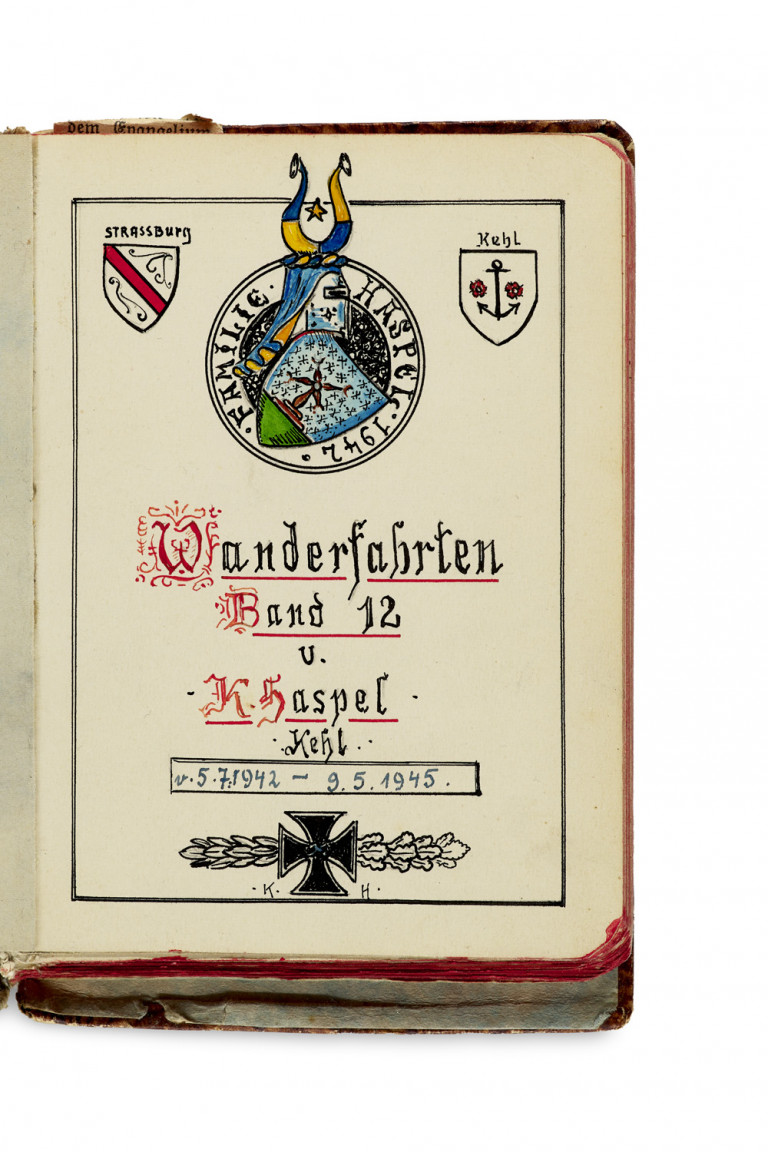 dem Evangelium
STRASSBURG
Kehl
· FAMILIE · HASPEL · 1942 ·
Wanderfahrten
Band 12
v.
· K. Haspel ·
· Kehl ·
v. 5.7.1942 – 9.5.1945.
· K. H.